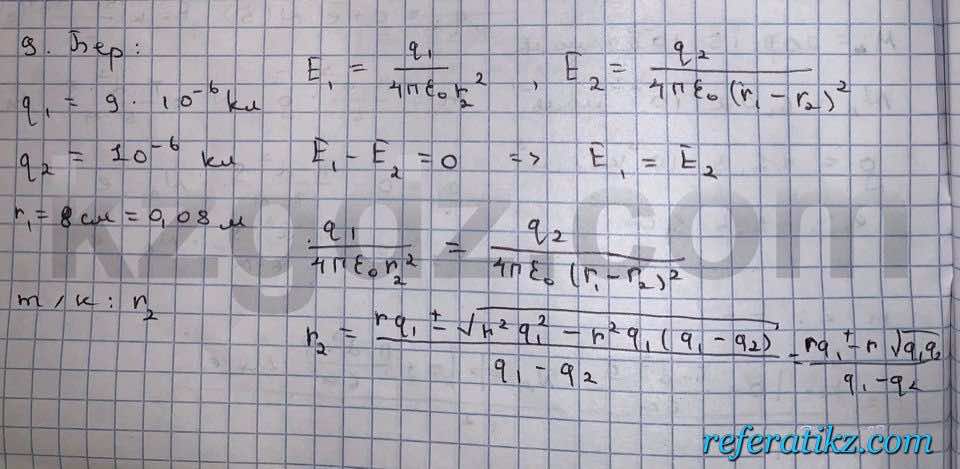 9. Бер:
q₁ = 9 · 10⁻⁶ кл
q₂ = 10⁻⁶ кл
r₁ = 8 см = 0,08 м
т/к: r₂
E₁ = q₁ / 4πε₀r₂² , E₂ = q₂ / 4πε₀(r₁ - r₂)²
E₁ - E₂ = 0 => E₁ = E₂
q₁ / 4πε₀r₂² = q₂ / 4πε₀(r₁ - r₂)²
r₂ = rq₁ ± √r²q₁² - r²q₁(q₁ - q₂) / q₁ - q₂ = rq₁ ± r√q₁q₂ / q₁ - q₂
kzgdz.com
referatikz.com